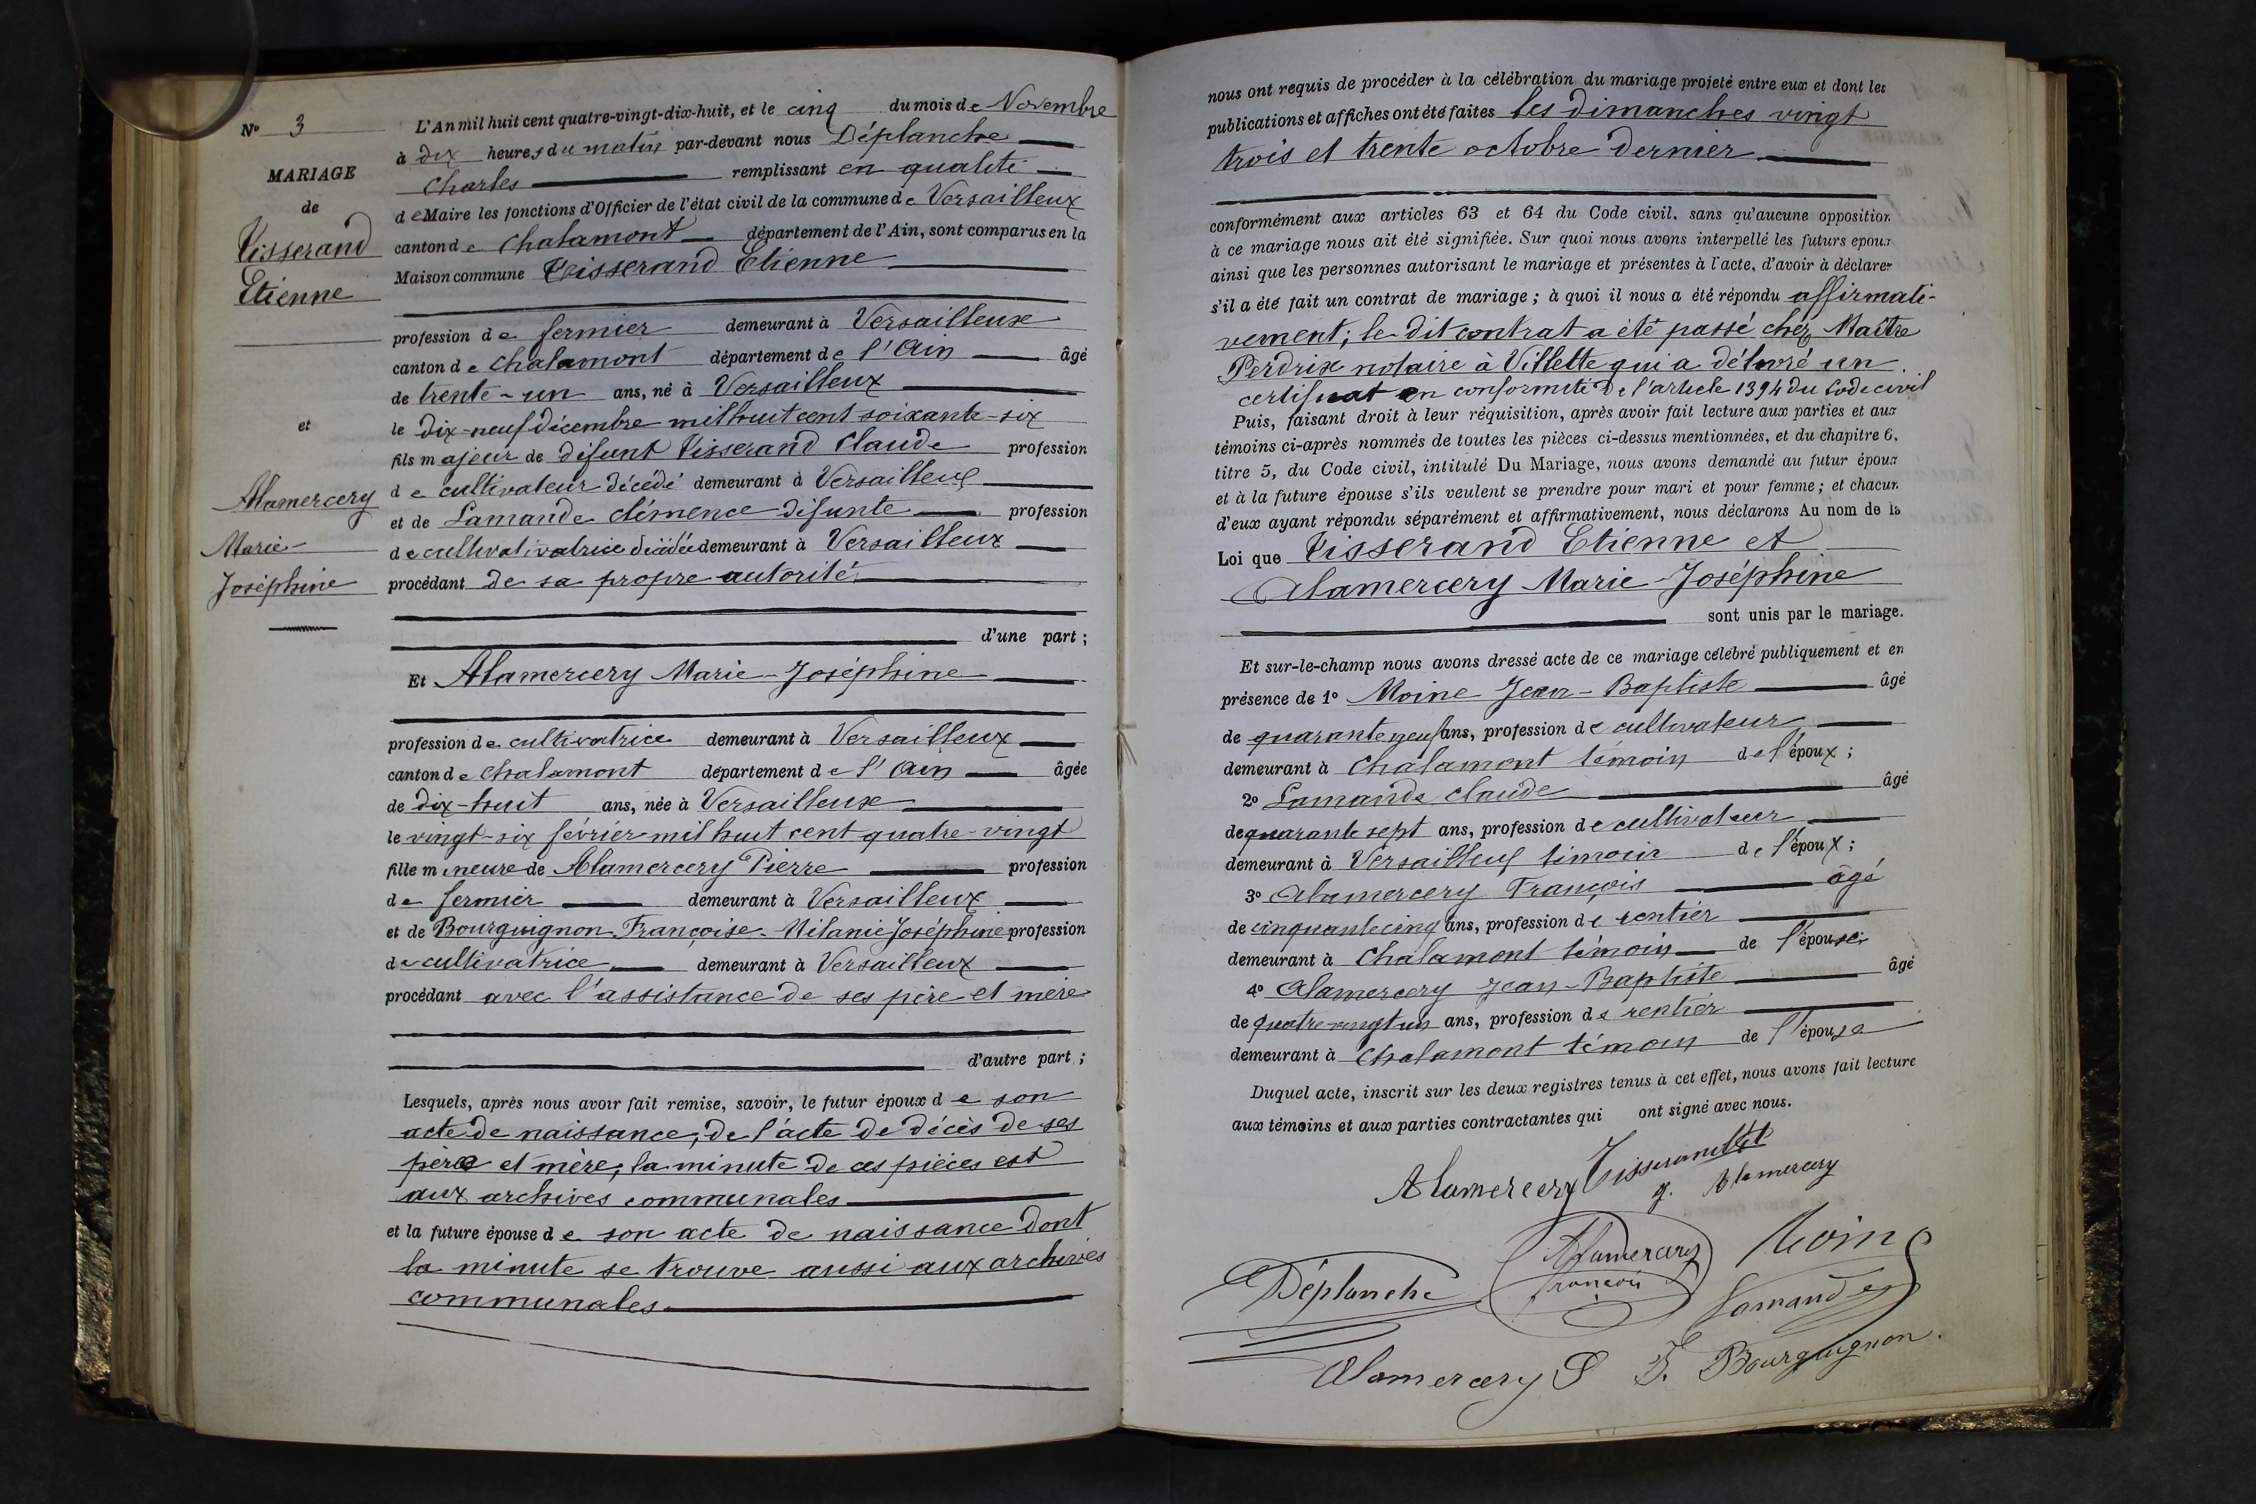 N° 3
MARIAGE
de
Tisserand
Etienne
et
Alamercery
Marie-
Joséphine
L'An mil huit cent quatre-vingt-dix-huit, et le cinq du mois de Novembre
à dix heures du matin par-devant nous Déplanche
Charles remplissant en qualité
de Maire les fonctions d'Officier de l'état civil de la commune de Versailleux
canton de Chalamont département de l'Ain, sont comparus en la
Maison commune Tisserand Etienne
profession de fermier demeurant à Versailleux
canton de Chalamont département de l'Ain âgé
de trente-un ans, né à Versailleux
le dix-neuf décembre mil huit cent soixante-six
fils majeur de défunt Tisserand Claude profession
de cultivateur décédé demeurant à Versailleux
et de Lamande clémence défunte profession
de cultivativatrice décédée demeurant à Versailleux
procédant de sa propre autorité
d'une part ;
Et Alamercery Marie-Joséphine
profession de cultivatrice demeurant à Versailleux
canton de Chalamont département de l'Ain âgée
de dix-huit ans, née à Versailleux
le vingt-six février mil huit cent quatre-vingt
fille mineure de Alamercery Pierre profession
de fermier demeurant à Versailleux
et de Bourguignon Françoise-Mélanie Joséphine profession
de cultivatrice demeurant à Versailleux
procédant avec l'assistance de ses père et mère
d'autre part ;
Lesquels, après nous avoir fait remise, savoir, le futur époux de son
acte de naissance, de l'acte de décès de ses
père et mère, la minute de ces pièces est
aux archives communales
et la future épouse de son acte de naissance dont
la minute se trouve aussi aux archives
communales
nous ont requis de procéder à la célébration du mariage projeté entre eux et dont les
publications et affiches ont été faites les dimanches vingt
trois et trente octobre dernier
conformément aux articles 63 et 64 du Code civil, sans qu'aucune opposition
à ce mariage nous ait été signifiée. Sur quoi nous avons interpellé les futurs époux
ainsi que les personnes autorisant le mariage et présentes à l'acte, d'avoir à déclarer
s'il a été fait un contrat de mariage ; à quoi il nous a été répondu affirmati-
vement; le dit contrat a été passé chez Maître
Perdrix notaire à Villette qui a délivré un
certificat en conformité de l'article 1394 du Code civil
Puis, faisant droit à leur réquisition, après avoir fait lecture aux parties et aux
témoins ci-après nommés de toutes les pièces ci-dessus mentionnées, et du chapitre 6,
titre 5, du Code civil, intitulé Du Mariage, nous avons demandé au futur époux
et à la future épouse s'ils veulent se prendre pour mari et pour femme ; et chacun
d'eux ayant répondu séparément et affirmativement, nous déclarons Au nom de la
Loi que Tisserand Etienne et
Alamercery Marie-Joséphine
sont unis par le mariage.
Et sur-le-champ nous avons dressé acte de ce mariage célébré publiquement et en
présence de 1° Moine Jean-Baptiste âgé
de quarante neuf ans, profession de cultivateur
demeurant à Chalamont témoin de l'époux ;
2° Lamande Claude âgé
de quarante sept ans, profession de cultivateur
demeurant à Versailleux témoin de l'époux ;
3° Alamercery François âgé
de cinquante cinq ans, profession de rentier
demeurant à Chalamont témoin de l'épouse
4° Alamercery Jean-Baptiste âgé
de quatre vingt un ans, profession de rentier
demeurant à Chalamont témoin de l'épouse
Duquel acte, inscrit sur les deux registres tenus à cet effet, nous avons fait lecture
aux témoins et aux parties contractantes qui ont signé avec nous.
Alamercery Tisserand
J. Alamercery
Déplanche Alamercery Moine
françois Lamande
Alamercery P F. Bourguignon.